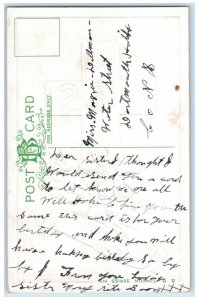 POST CARD
FOR ADDRESS ONLY
Miss Marrie Dollman
Water Street
Dartmouth
Co N S
Dear sister I thought I
would send you a card
to let know we are all
well hope to find you the
same this card is for your
birthday and hope you will
have a happy birthday by by
from your love
Sister